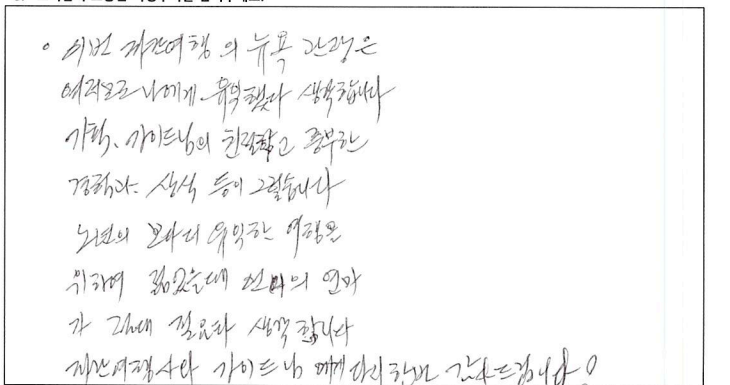 이번 자간여행의 뉴욕 관광은
여러모로 나에게 유익했다 생각합니다
가이드님의 친절하고 풍부한
경험과 상식 등이 그렇습니다
노년의 보다 더 유익한 여행을
위하여 젊었을때 의 연마
가 절대 필요타 생각합니다
여행사와 가이드님에게 다시한번 감사드립니다!